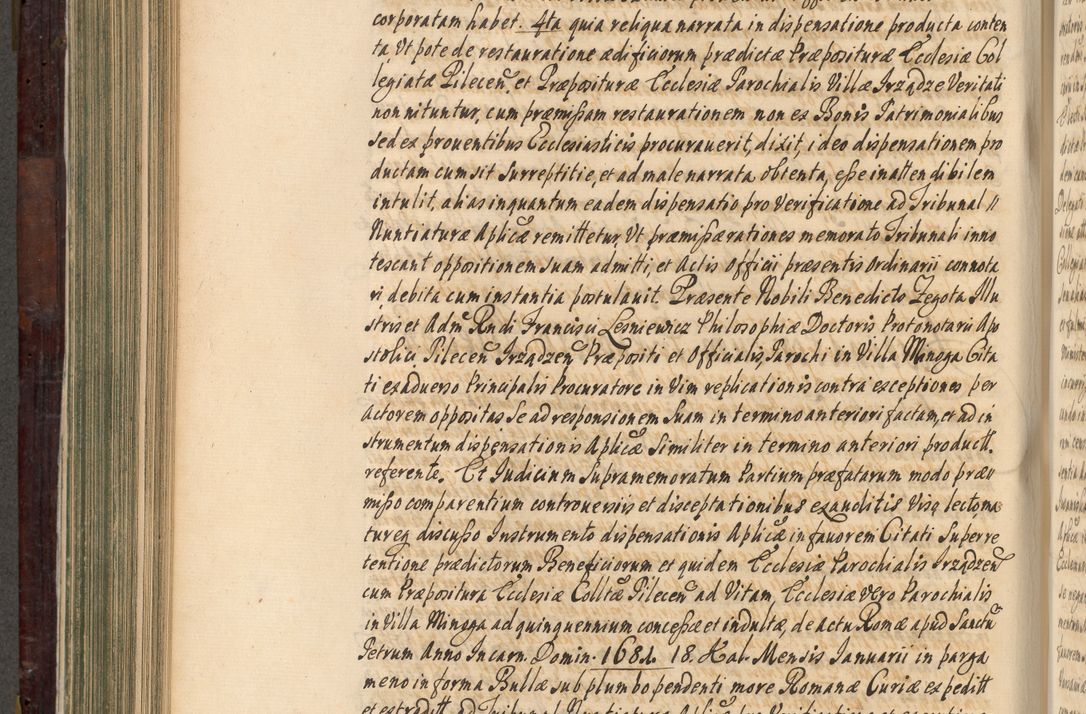 corporatam habet. 4ta quia reliqua narrata in dispensatione producta conten
ta, Vt pote de restauratione ædificiorum prædictæ Præposituræ Ecclesiæ Col
legiatæ Pilecen. et Præposituræ Ecclesiæ Parochialis Villæ Irządze Veritati
non nituntur, cum præmissam restaurationem non ex Bonis Patrimonialibus
sed ex prouentibus Ecclesiasticis procurauerit, dixit, ideo dispensationem pro
ductam cum sit Surreptitie, et ad male narrata obtenta, esse inattendibilem
intulit, alias inquantum eadem dispensatio pro Verificatione ad Tribunal //
Nuntiaturæ Aplicæ remittetur, Vt præmissæ rationes memorato Tribunali inno
tescant oppositionem suam admitti, et Actis Officii præsentis Ordinarii connota
ri, debita cum instantia postulauit. Præsente Nobili Benedicto Zegota Illu
stris et Adm Rndi Francisci Lesniewicz Philosophiæ Doctoris Protonotarii Apo
stolici Pilecen Irządzen Præpositi et Officialis, Parochi in Villa Minoga Cita
ti ex aduerso Principalis Procuratore in Vim replicationis contra exceptiones per
Actorem oppositas Se ad responsionem Suam in termino anteriori factam, et ad in
strumentum dispensationis Aplicæ Similiter in termino anteriori product.
referente. Et Iudicium Supramemoratum Partium præfatarum modo præ//
misso comparentium controuersiis et disceptationibus exauditis Viso lecto, ma
tureq discusso Instrumento dispensationis Aplicæ in fauorem Citati Super re
tentione prædictorum Beneficiorum et quidem Ecclesiæ Parochialis Irządzen
cum Præpositura Ecclesiæ Colltæ Pilecen ad Vitam, Ecclesiæ Vero Parochialis
in Villa Minoga ad quinquennium concessæ et indultæ, de actu Romæ apud Sanctu
Petrum Anno Incarn. Domin. 1681. 18. Kal. Mensis Ianuarii in parga
meno in forma Bullæ sub plumbo pendenti more Romanæ Curiæ expeditt